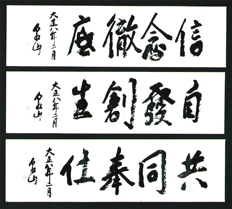 信念徹底
大正八年
自發創生
大正八年
共同奉仕
大正八年